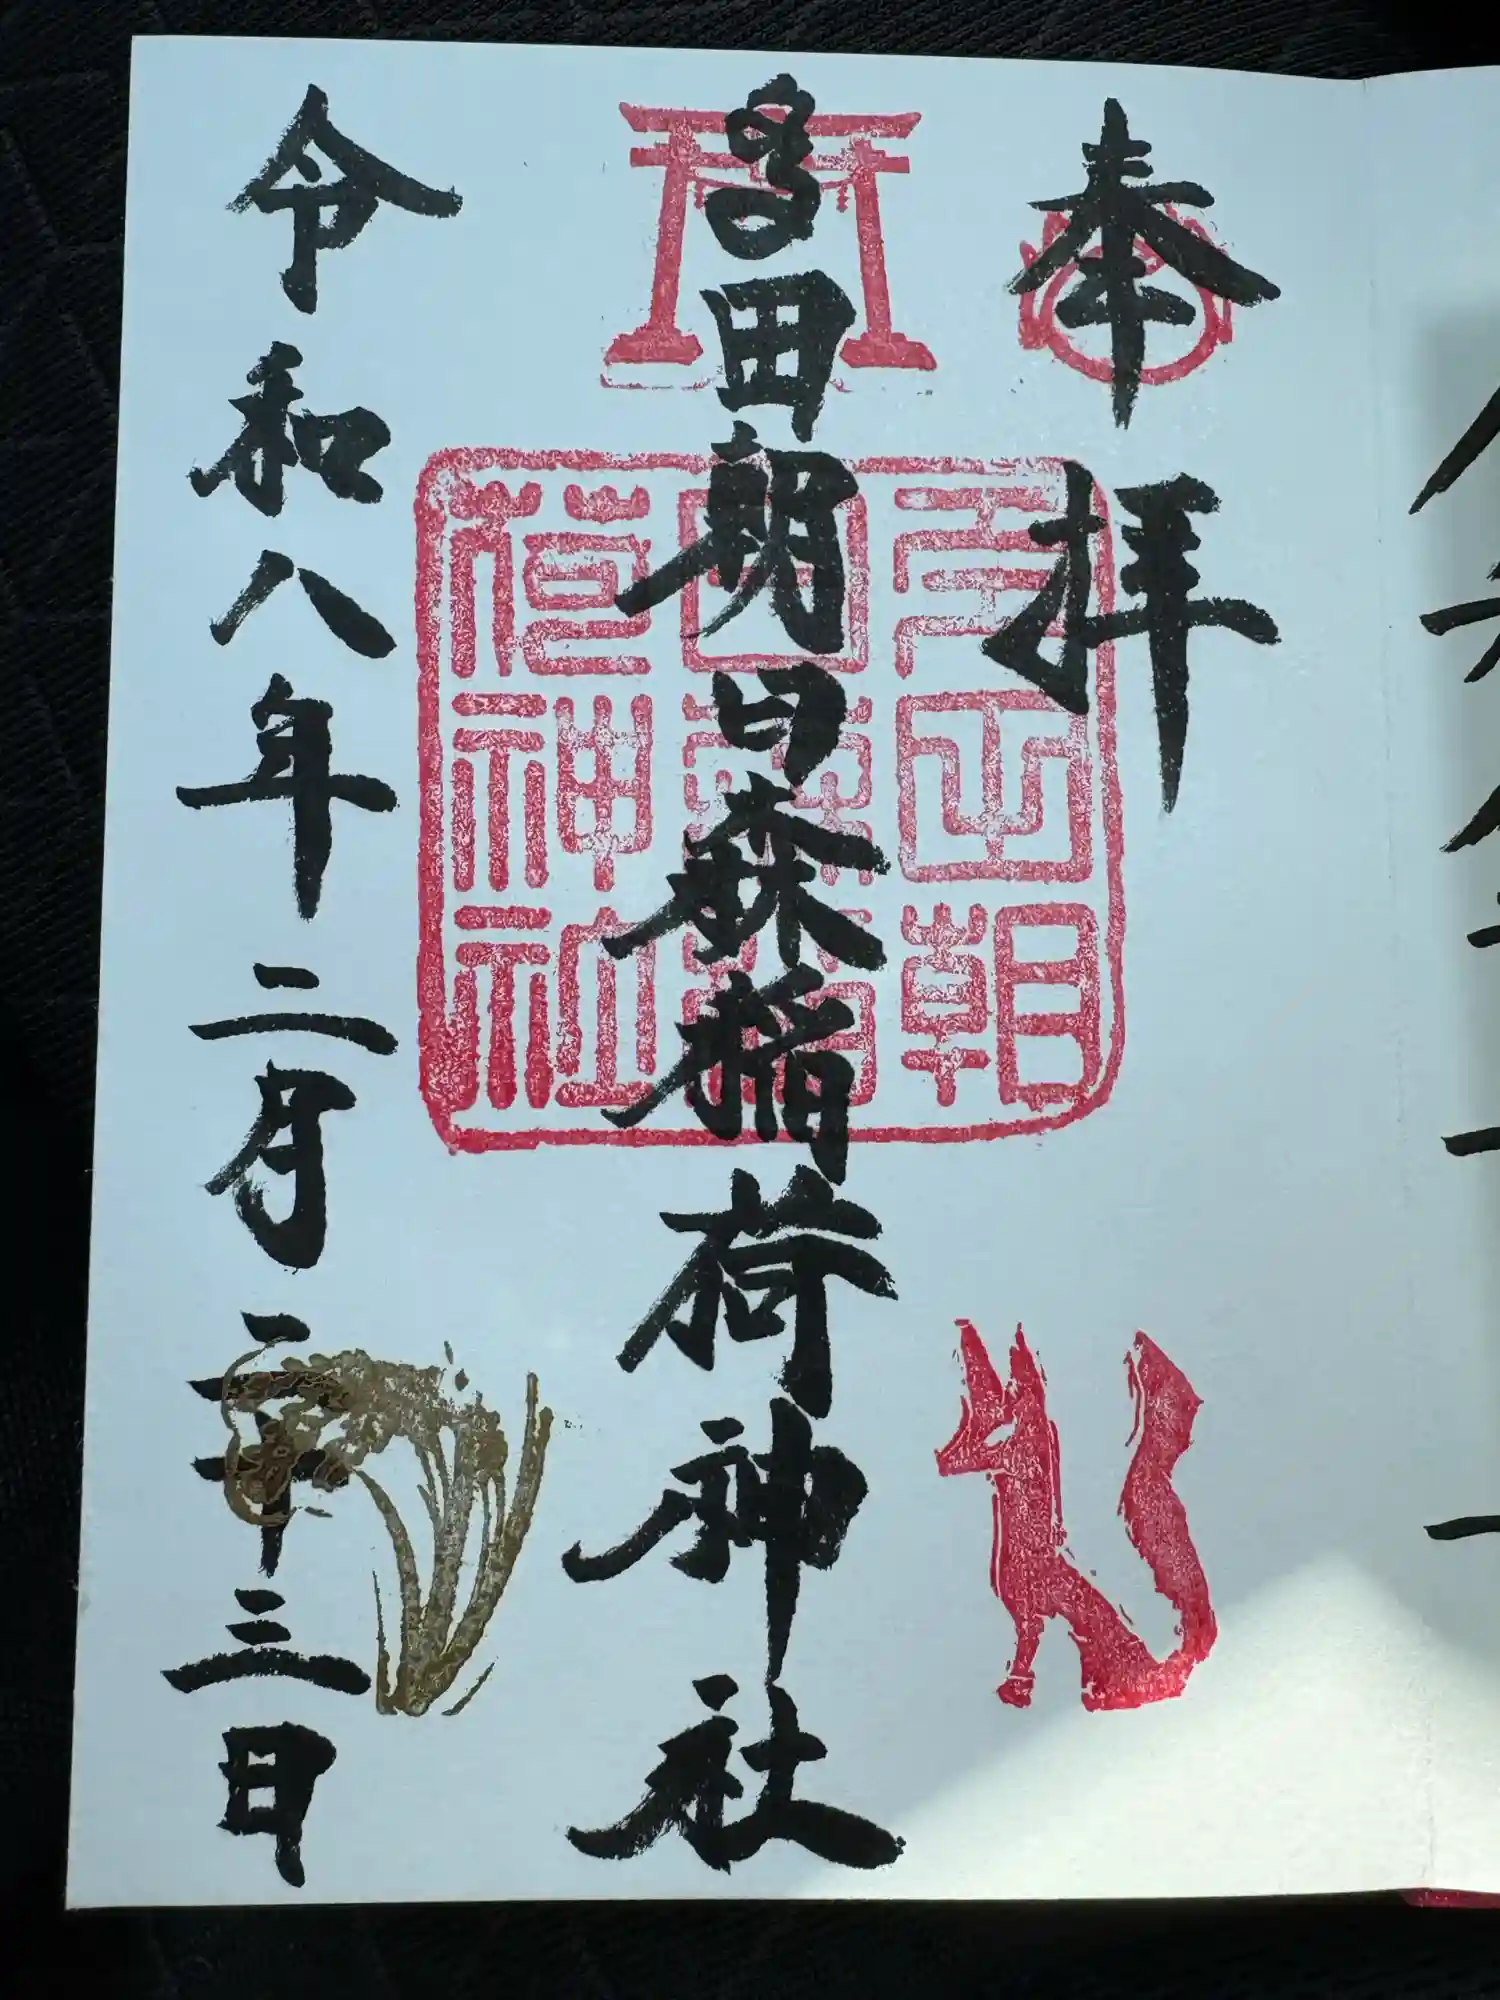 奉拝
多田朝日森稲荷神社
多田朝
日森稲
荷神社
令和八年二月二十三日